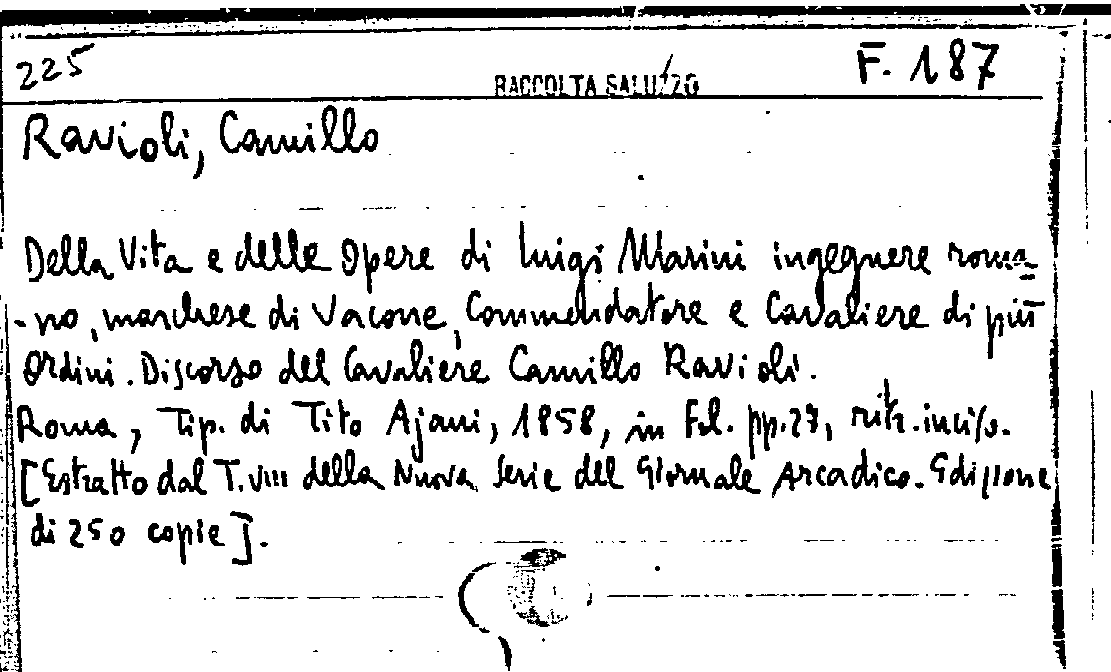 225
RACCOLTA SALUZZO
F. 187
Ravioli, Camillo
Della Vita e delle Opere di Luigi Marini ingegnere roma
-no, marchese di Vacone, Commendatore e Cavaliere di più
Ordini. Discorso del Cavaliere Camillo Ravioli.
Roma, Tip. di Tito Ajani, 1858, in Fol. pp. 27, ritr. inciso.
[Estratto dal T. VIII della Nuova Serie del Giornale Arcadico. Edizione
di 250 copie].